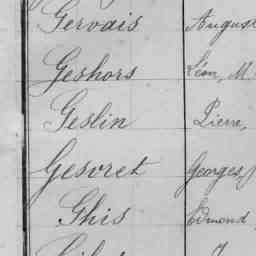 Gervais August
Geshors Léon, M
Geslin Pierre,
Gesvret Georges,
Ghis Edmond